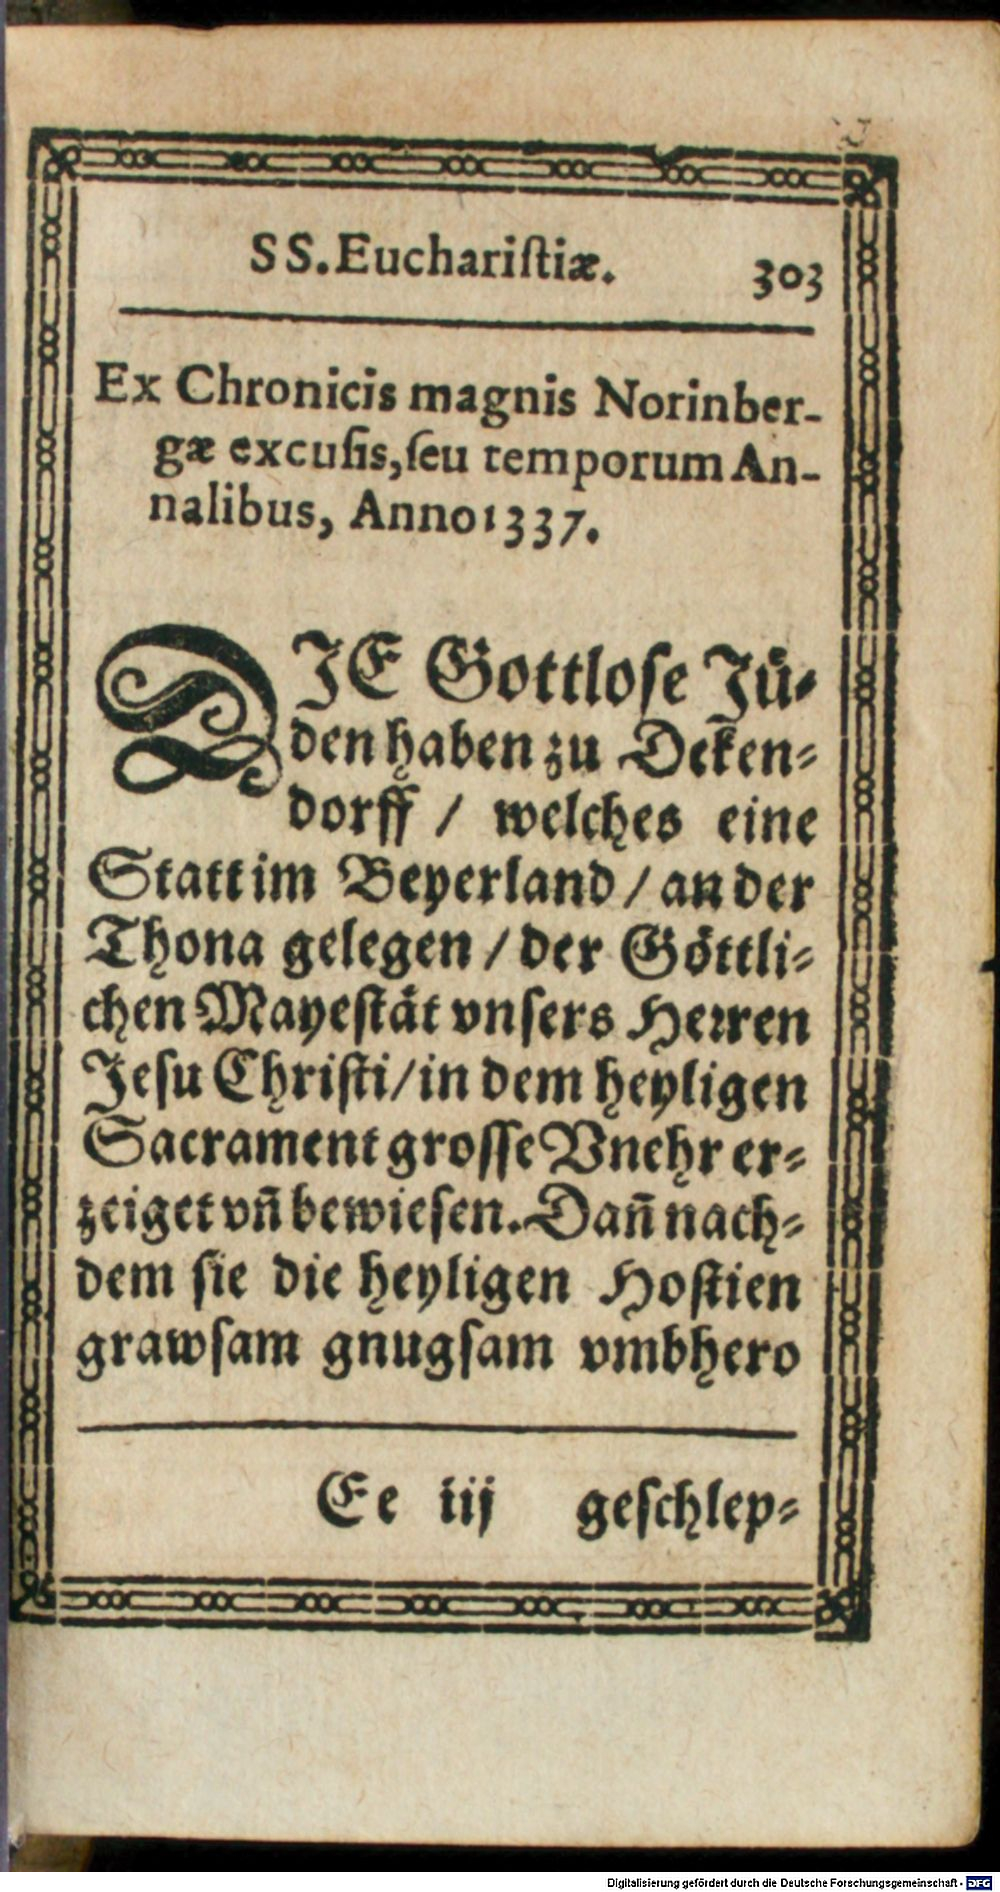 SS. Euchariſtiæ. 303
Ex Chronicis magnis Norinber-
gæ excuſis, ſeu temporum An-
nalibus, Anno 1337.
DJE Gottloſe Juͤ-
den haben zu Deckẽn-
dorff / welches eine
Statt im Beyerland / an der
Thona gelegen / der Goͤttli-
chen Mayeſtaͤt vnſers Herren
Jeſu Chriſti / in dem heyligen
Sacrament groſſe Vnehr er-
zeiget vñ bewieſen. Dañ nach-
dem ſie die heyligen Hoſtien
grawſam gnugſam vmbhero
Ee iij geſchlep-
Digitalisierung gefördert durch die Deutsche Forschungsgemeinschaft - DFG